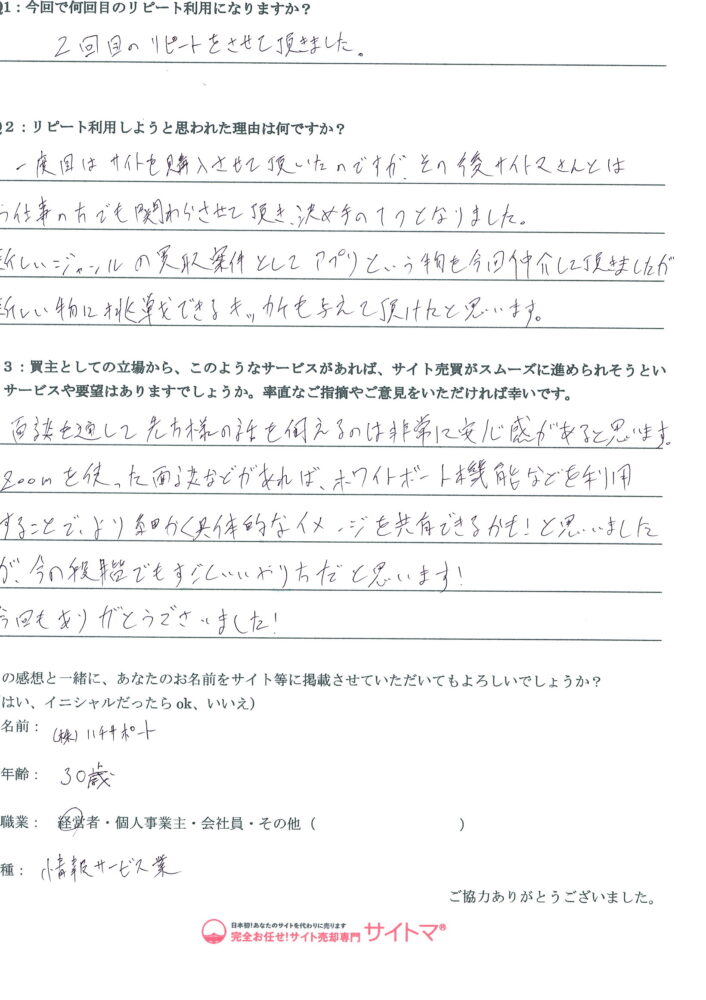 Q1：今回で何回目のリピート利用になりますか？
2回目のリピートをさせて頂きました。
Q2：リピート利用しようと思われた理由は何ですか？
一度目はサイトを購入させて頂いたのですが、その後サイトマさんとは
お仕事の方でも関わらさせて頂き、決め手の1つとなりました。
新しいジャンルの買収案件としてアプリという物を今回仲介して頂きましたが
新しい物に挑戦できるキッカケを与えて頂けたと思います。
3：買主としての立場から、このようなサービスがあれば、サイト売買がスムーズに進められそうとい
サービスや要望はありますでしょうか。率直なご指摘やご意見をいただければ幸いです。
面談を通して先方様の話を伺えるのは非常に安心感があると思います。
zoomを使った面談などがあれば、ホワイトボード機能などを利用
することで、より細かく具体的なイメージを共有できるかも！と思いました
が、今の段階でもすごくいいやり方だと思います！
今回もありがとうございました！
の感想と一緒に、あなたのお名前をサイト等に掲載させていただいてもよろしいでしょうか？
はい、イニシャルだったら ok、いいえ）
名前： (株)ハチサポート
年齢： 30歳
職業： 経営者・個人事業主・会社員・その他（ ）
種： 情報サービス業
ご協力ありがとうございました。
日本初！あなたのサイトを代わりに売ります
完全お任せ！サイト売却専門 サイトマ®